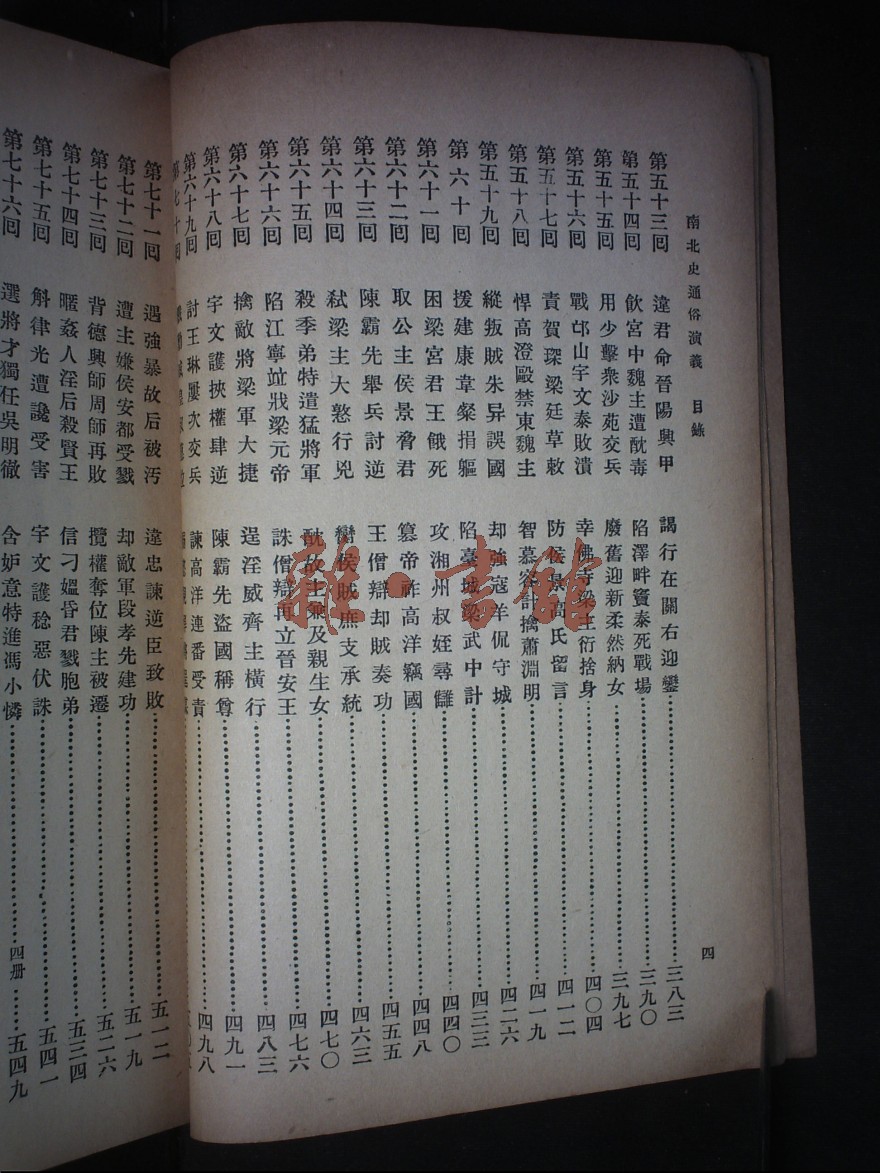 南北史通俗演義　目錄
四
第五十三囘　違君命晉陽興甲　謁行在關右迎鑾……三八三
第五十四囘　飲宮中魏主遭酖毒　陷澤畔竇泰死戰場……三九〇
第五十五囘　用少擊衆沙苑交兵　廢舊迎新柔然納女……三九七
第五十六囘　戰邙山宇文泰敗潰　幸佛寺梁主衍捨身……四〇四
第五十七囘　責賀琛梁廷草敕　防侯景高氏留言……四一二
第五十八囘　悍高澄毆禁東魏主　智慕容計擒蕭淵明……四一九
第五十九囘　縱叛賊朱异誤國　却強寇羊侃守城……四二六
第六十囘　援建康韋粲捐軀　陷臺城梁武中計……四三三
第六十一囘　困梁宮君王餓死　攻湘州叔姪尋讎……四四〇
第六十二囘　取公主侯景脅君　篡帝祚高洋竊國……四四八
第六十三囘　陳霸先舉兵討逆　王僧辯却賊奏功……四五五
第六十四囘　弒梁主大憝行兇　臠侯賊庶支承統……四六三
第六十五囘　殺季弟特遣猛將軍　酖故主兼及親生女……四七〇
第六十六囘　陷江寧竝戕梁元帝　誅僧辯再立晉安王……四七六
第六十七囘　擒敵將梁軍大捷　逞淫威齊主橫行……四八三
第六十八囘　宇文護挾權肆逆　陳霸先盜國稱尊……四九一
第六十九囘　討王琳屢次交兵　諫高洋連番受責……四九八
第七十囘
第七十一囘　遇強暴故后被汚　違忠諫逆臣致敗……五一二
第七十二囘　遭主嫌侯安都受戮　却敵軍段孝先建功……五一九
第七十三囘　背德興師周師再敗　攬權奪位陳主被遷……五二六
第七十四囘　暱姦人淫后殺賢王　信刁媼昏君戮胞弟……五三四
第七十五囘　斛律光遭讒受害　宇文護稔惡伏誅……五四一
第七十六囘　選將才獨任吳明徹　含妒意特進馮小憐……四册……五四九
雜·書館